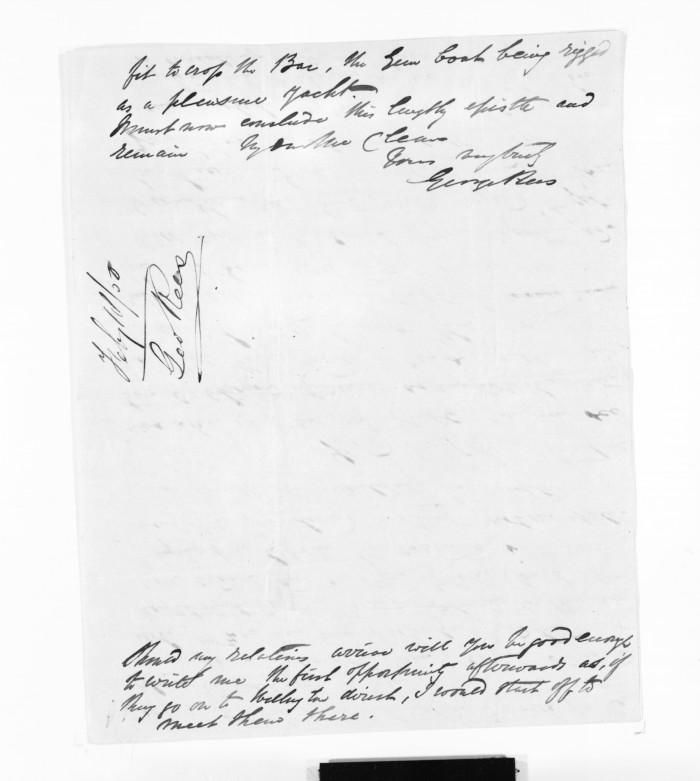 fit to cross the Bar, the Gun boats being rigged
as a pleasure yacht
I must now conclude this lengthy epistle and
remain My dear McLean
Yours very truly
George Rees
Feby 18/50
Geo Rees
Should my relations arrive will you be good enough
to write me the first opportunity afterwards as, if
they go on to Wellington direct, I would start off to
meet them there.